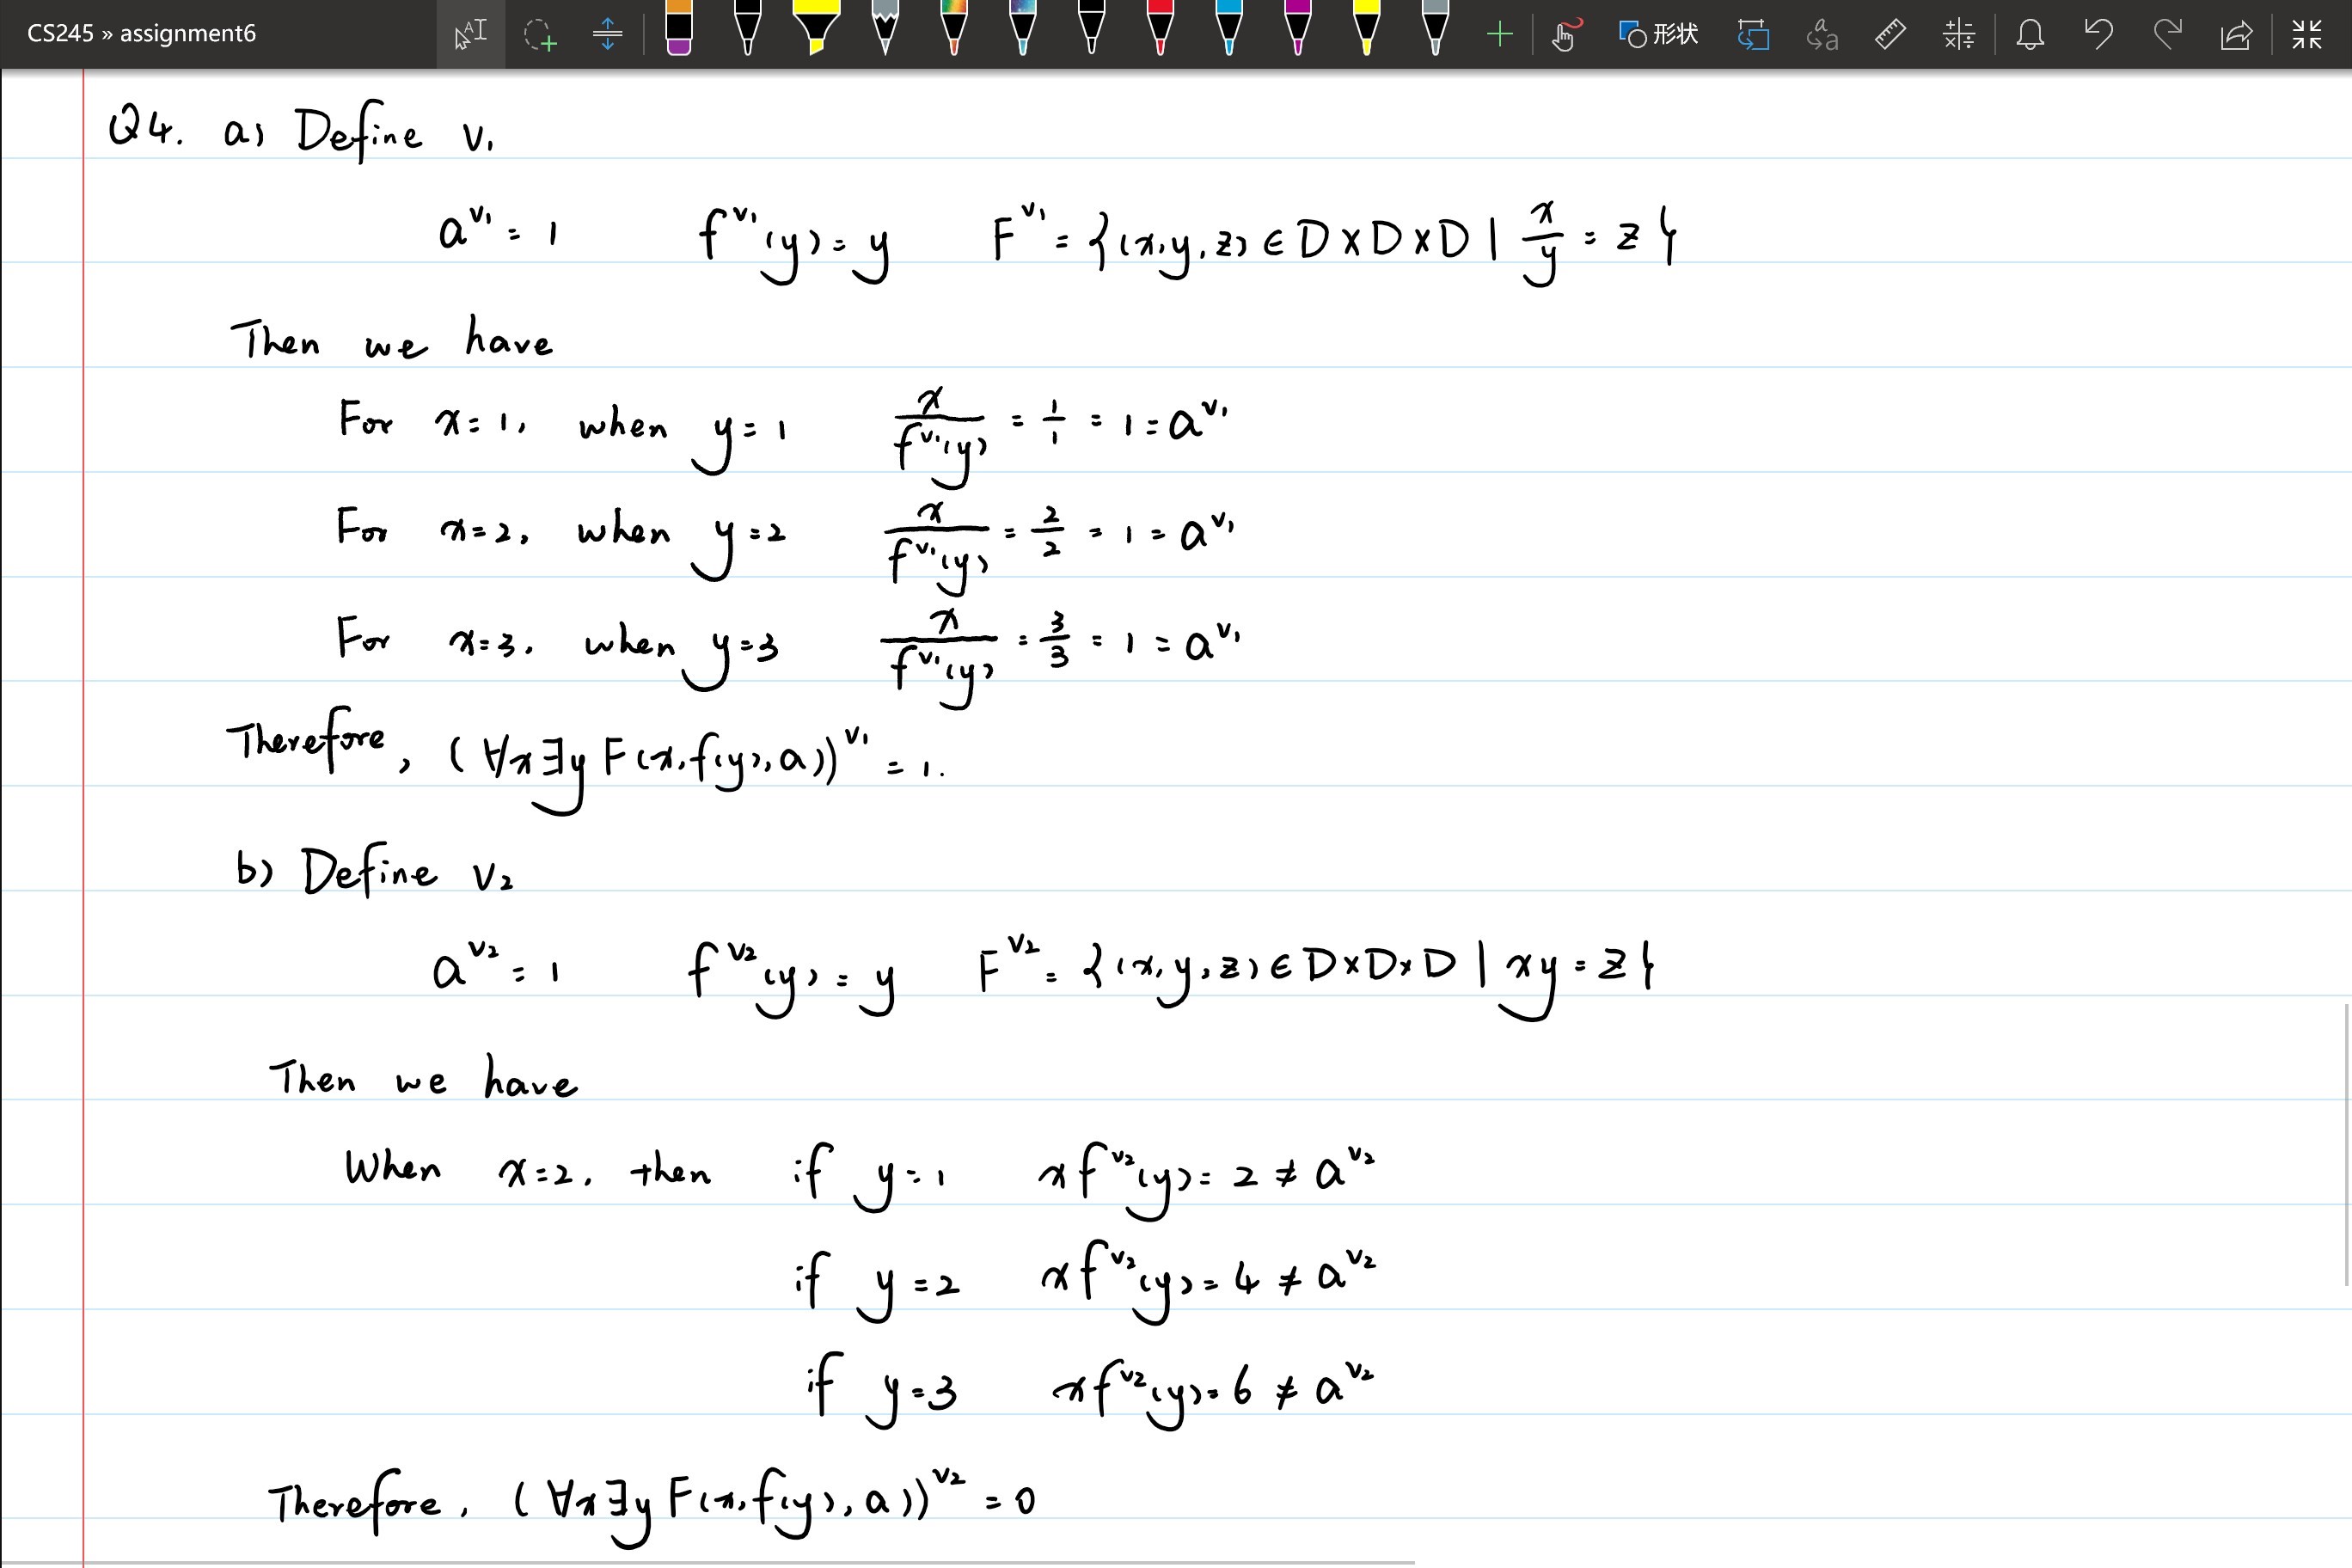 CS245 » assignment6
形状
Q4. a) Define v₁
a^v₁ = 1 f^v₁(y) = y F^v₁ = {(x,y,z) ∈ D×D×D | x/y = z}
Then we have
For x=1, when y=1 x/f^v₁(y) = 1/1 = 1 = a^v₁
For x=2, when y=2 x/f^v₁(y) = 2/2 = 1 = a^v₁
For x=3, when y=3 x/f^v₁(y) = 3/3 = 1 = a^v₁
Therefore, (∀x∃y F(x,f(y),a))^v₁ = 1.
b) Define v₂
a^v₂ = 1 f^v₂(y) = y F^v₂ = {(x,y,z) ∈ D×D×D | xy = z}
Then we have
When x=2, then if y=1 xf^v₂(y) = 2 ≠ a^v₂
if y=2 xf^v₂(y) = 4 ≠ a^v₂
if y=3 xf^v₂(y) = 6 ≠ a^v₂
Therefore, (∀x∃y F(x,f(y),a))^v₂ = 0